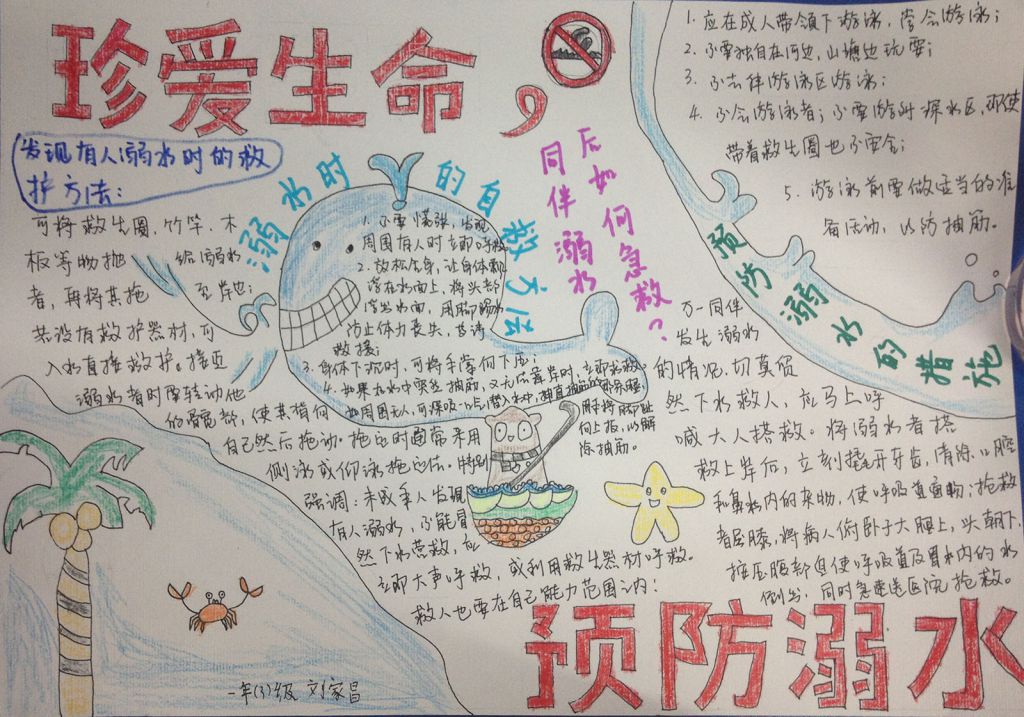 珍爱生命，
发现有人溺水时的救
护方法：
可将救生圈、竹竿、木
板等物抛给溺水
者，再将其拖至岸边；
若没有救护器材，可
入水直接救护。接近
溺水者时要转动他
的髋部，使其背向
自己然后拖动。拖运时通常采用
侧泳或仰泳拖运法。特别
强调：未成年人发现
有人溺水，不能冒
然下水营救，应
立即大声呼救，或利用救生器材呼救。
救人也要在自己能力范围之内：
溺水时的自救方法
1. 不要慌张，发现
周围有人时立即呼救
2. 放松全身，让身体飘
浮在水面上，将头部
浮出水面，用脚踢水
防止体力丧失，等待
救援；
3. 身体下沉时，可将手掌向下压；
4. 如果在水中突然抽筋，又无法靠岸时，立即求救
如周围无人，可深吸一口气潜入水中，伸直抽筋的
用手将脚趾
向上扳，以解
除抽筋。
同伴溺水
后如何急救？
万一同伴
发生溺水
的情况，切莫贸
然下水救人，应马上呼
喊大人搭救。将溺水者搭
救上岸后，立刻撬开牙齿，清除口腔
和鼻内的杂物，使呼吸道畅；抢救
者屈膝，将病人俯卧于大腿上，头朝下，
按压腹部迫使呼吸道及胃内的水
倒出，同时急速送医院抢救。
1. 应在成人带领下游泳，学会游泳；
2. 不要独自在河边，山塘边玩耍；
3. 不去非游泳区游泳；
4. 不会游泳者；不要游到深水区，即使
带着救生圈也不安全；
5. 游泳前要做适当的准
备活动，以防抽筋。
预防溺水的措施
一年(3)级 刘家昌
预防溺水